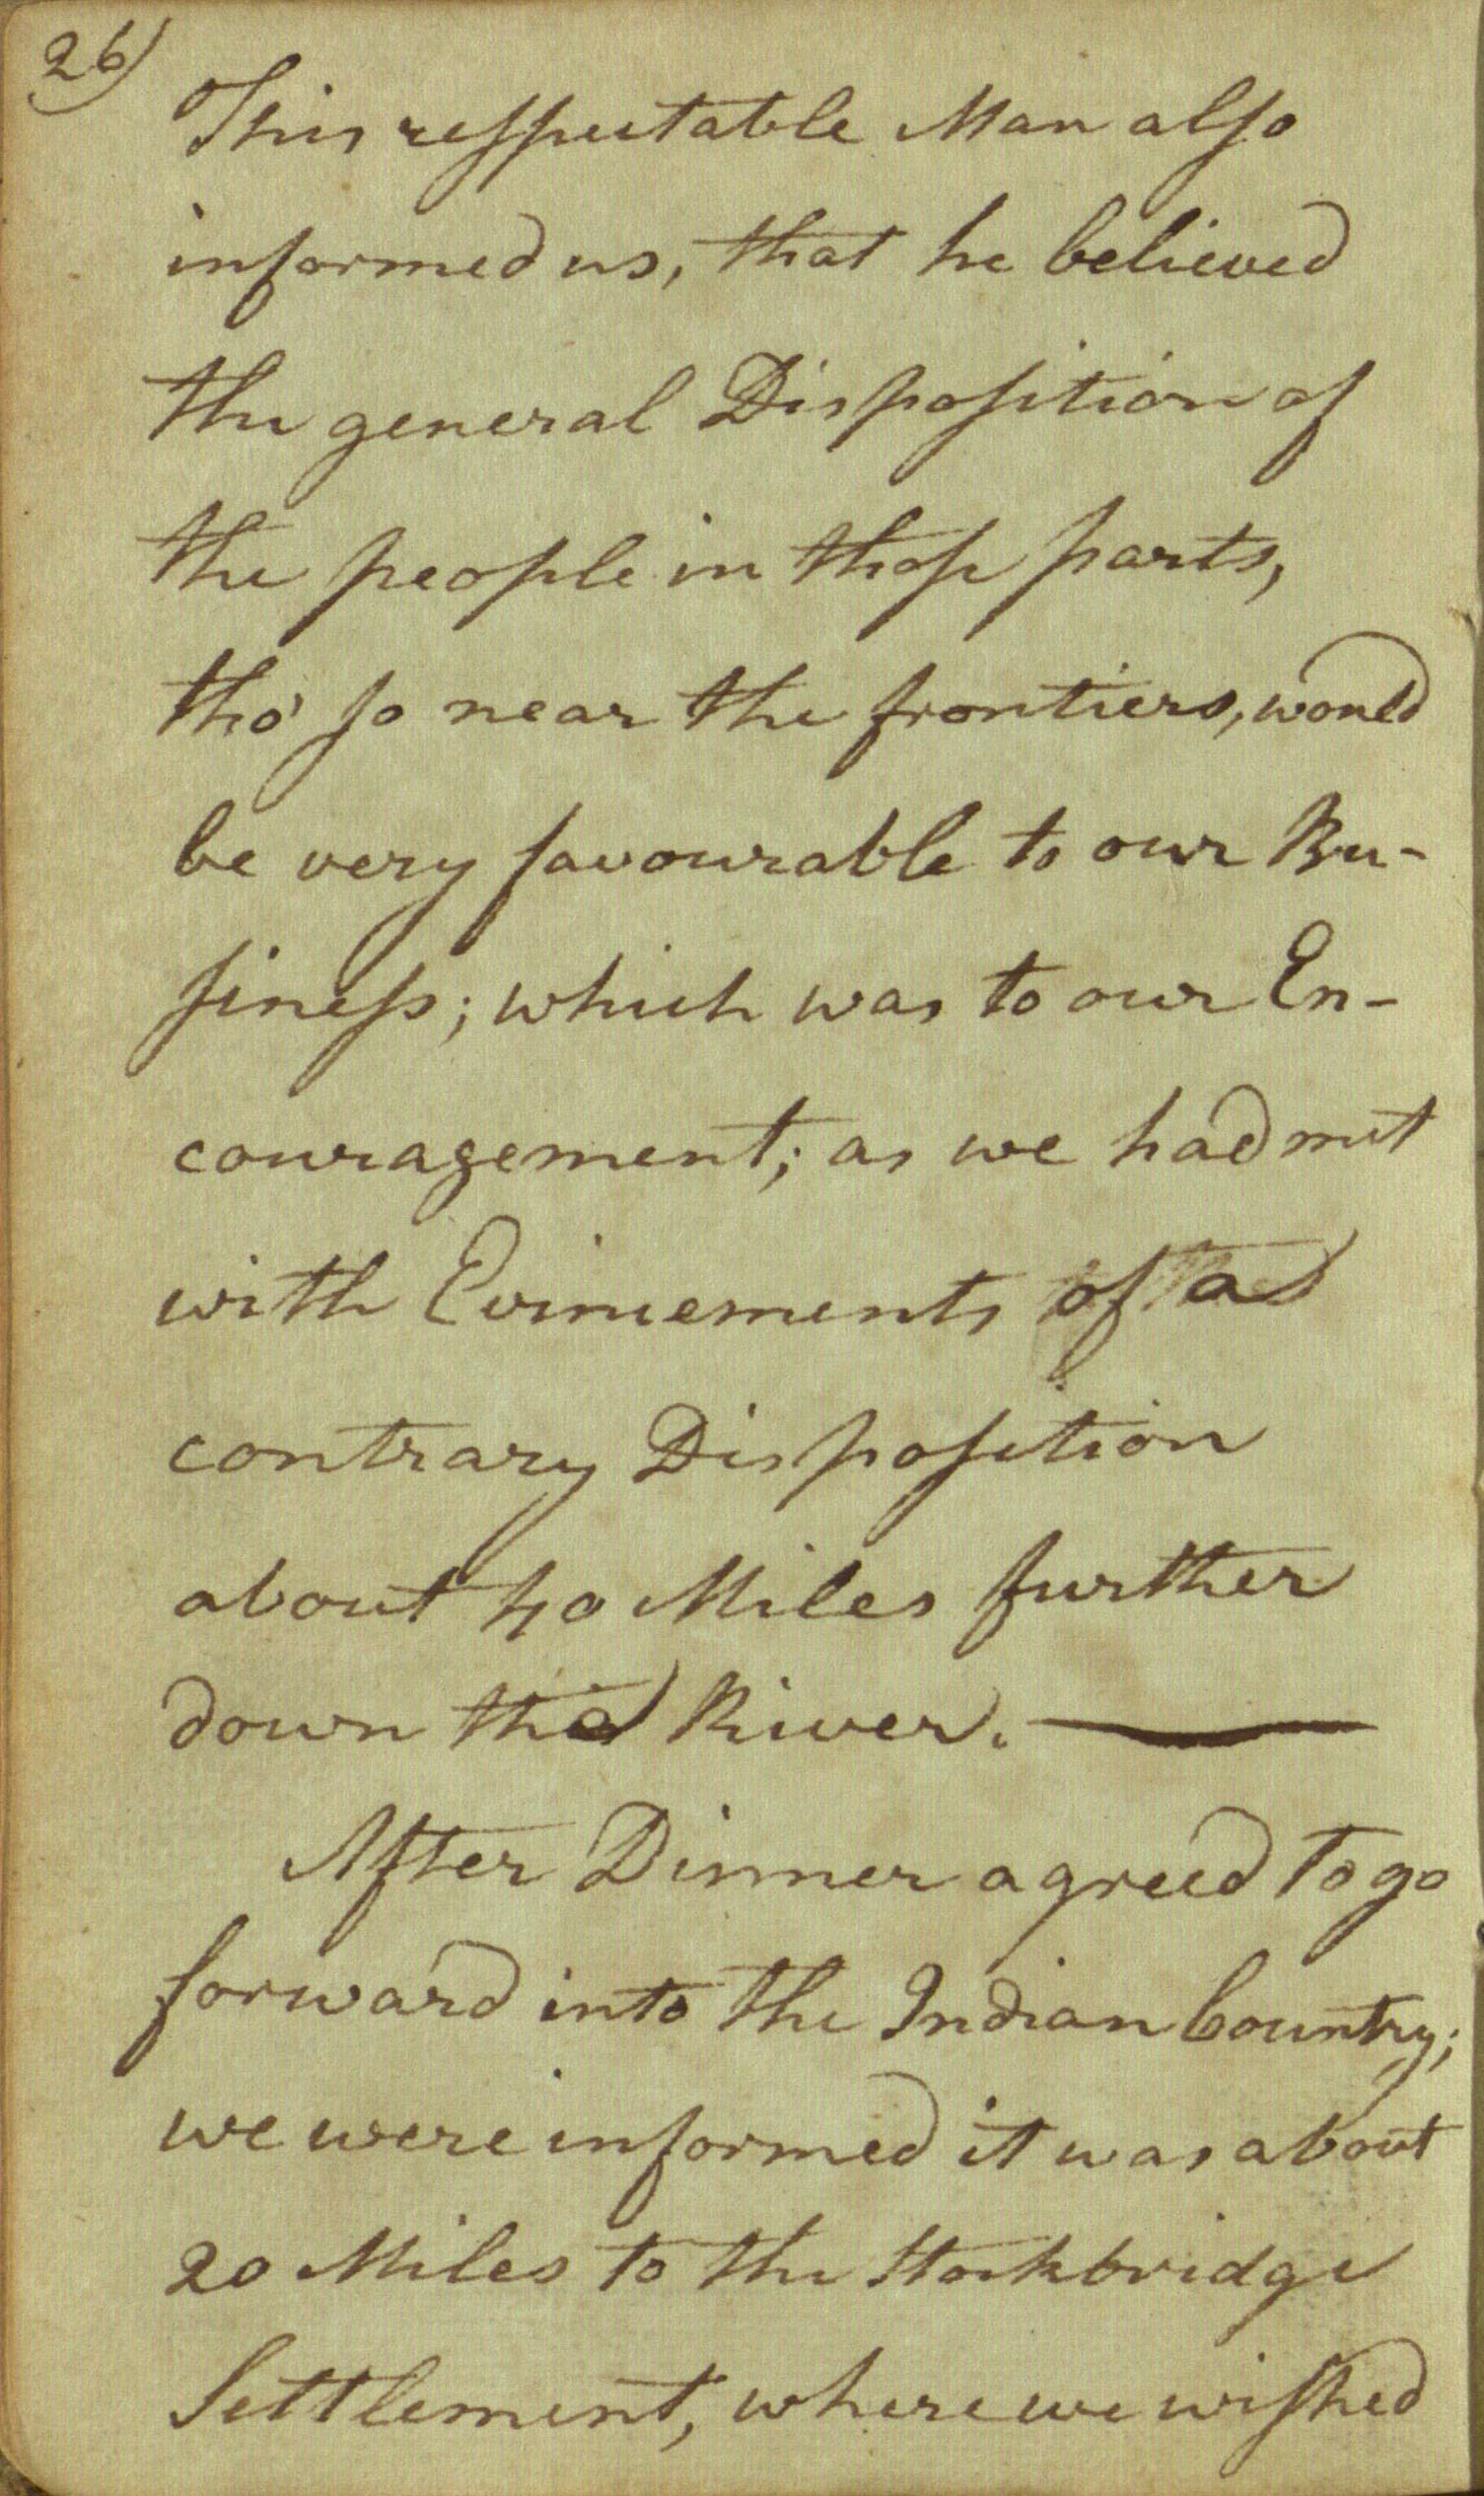 26)
This respectable Man also
informed us, that he believed
the general Disposition of
the people in those parts,
tho' so near the frontiers, would
be very favourable to our Bu-
siness; which was to our En-
couragement; as we had met
with Evincements of a
contrary Disposition
about 40 Miles further
down the River.
After Dinner agreed to go
forward into the Indian Country;
we were informed it was about
20 Miles to the Stockbridge
Settlement, where we wished